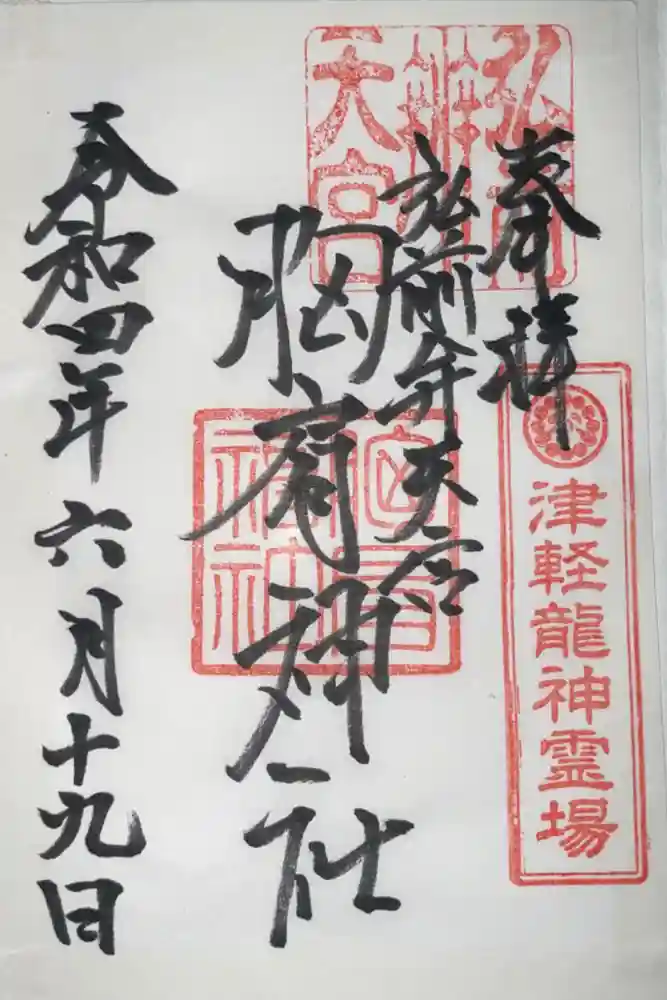 奉拝
津軽龍神霊場
弘前辨天宮
弘前弁天宮
胸肩神社
令和四年六月十九日